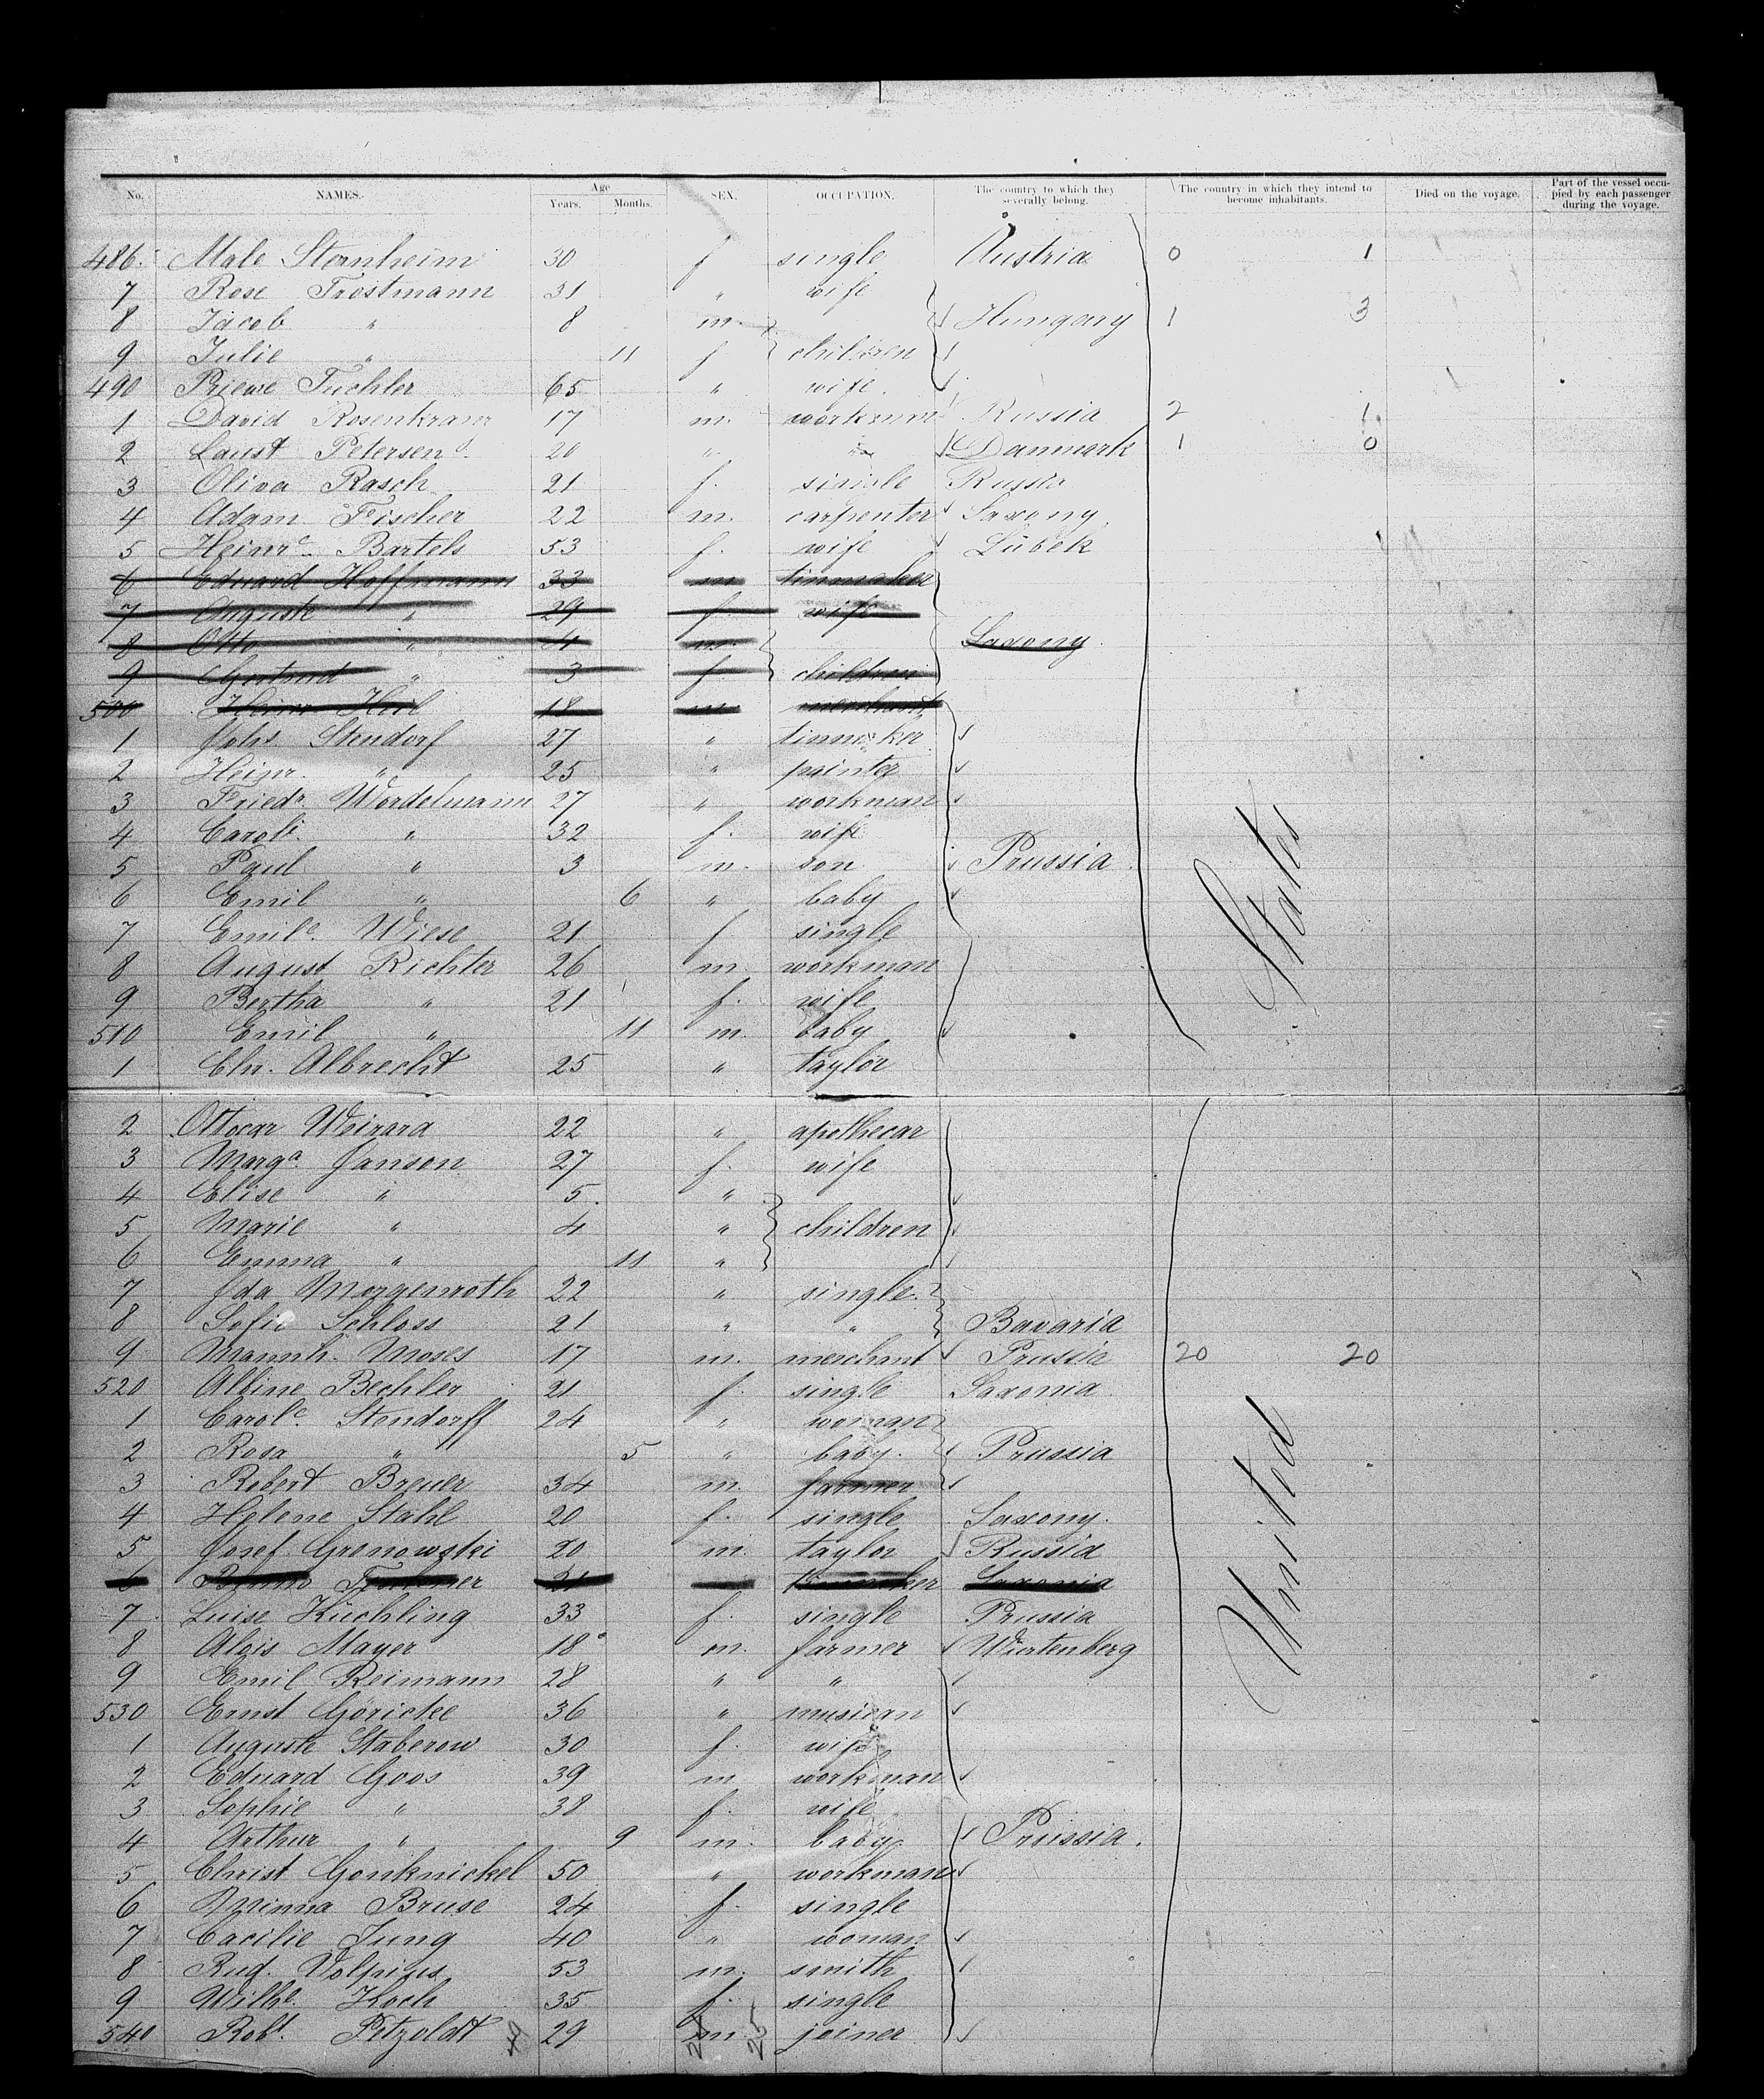 No. NAMES. Age Years. Months. SEX. OCCUPATION. The country to which they severally belong. The country in which they intend to become inhabitants. Died on the voyage. Part of the vessel occupied by each passenger during the voyage.
486. Male Sternheim 30 f single Austria 0 1
7 Rose Trostmann 31 " wife
8 Jacob " 8 m. Hungary 1 3
9 Julie " 11 f children
490 Tuchler 65 " wife.
1 David Rosenkranz 17 m. workman Russia 2 1
2 Laust Petersen 20 " " Danmark 1 0
3 Oliva Rasch 21 f. single Russia
4 Adam Fischer 22 m. carpenter Saxony
5 Heinr.e Bartels 53 f. wife Lübek
6 Eduard Hoffmann 33 m tinmaker
7 Auguste " 29 f. wife
8 Otto " 4 m. Saxony.
9 Gertrud " 3 f children
500 Heinr. 18 m merchant
1 Johs. Stendorf 27 " tinmaker
2 Heinr. " 25 " painter
3 Friedr. Wordelmann 27 " workman
4 Caroli. " 32 f. wife
5 Paul " 3 m. son Prussia
6 Emil " 6 " baby
7 Emile. Wiese 21 f single
8 August Richter 26 m workman
9 Bertha " 21 f. wife
510 Emil " 11 m. baby
1 Chr. Albrecht 25 " taylor
2 Ottocar 22 " apothecar
3 Marga. Janson 27 f. wife
4 Elise " 5. "
5 Marie " 4 " children
6 Emma " 11 "
7 Ida Morgenroth 22 " single
8 Sofie Schloss 21 " " Bavaria
9 Mannh. Moses 17 m. merchant Prussia 20 20
520 Albine Bechler 21 f. single Saxonia
1 Carole. Stendorff 24 " woman
2 Rosa " 5 " baby. Prussia
3 Robert Breuer 34 m. farmer
4 Helene Stahl 20 f. single Saxony.
5 Josef Gronowski 20 m. taylor Russia
6 21 tinmaker Saxonia
7 Luise Küchling 33 f. single Prussia
8 Alois Mayer 18 m. farmer Würtenberg
9 Emil Reimann 28 " "
530 Ernst Göricke 36 " musican
1 Auguste Staberow 30 f. wife
2 Eduard Goos 39 m. workman
3 Sophie " 38 f. wife
4 Arthur " 9 m. baby Prussia.
5 Christ Gonknickel 50 " workman
6 Minna Bruse 24 f. single
7 Cacilie Jung 40 " woman
8 Rud. Volpius 53 m. smith
9 Wilhe. Koch 35 f. single
540 Robt. Petzoldt 29 m. joiner
United States